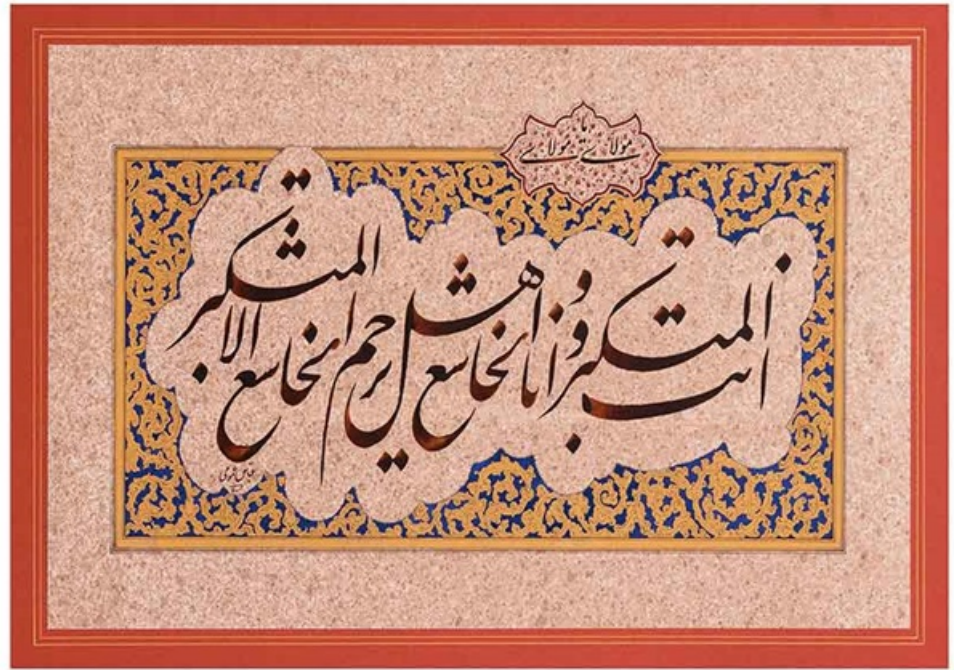 مولای یا مولای
انت المتکبر و انا الخاشع و هل یرحم الخاشع الا المتکبر